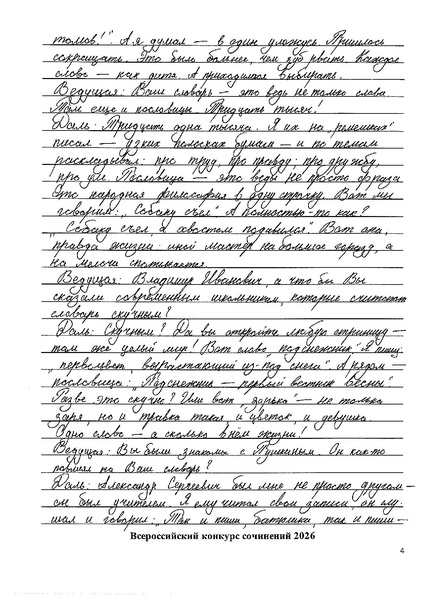 томов!" А я думал — в один уложусь. Пришлось
сокращать. Это было больнее, чем зуб рвать. Каждое
слово — как дитя. А приходилось выбирать.
Ведущая: Ваш словарь — это ведь не только слова.
Там ещё и пословицы. Тридцать тысяч!
Даль: Тридцать одна тысяча. Я их на „ремешках"
писал — узких полосках бумаги — и по темам
раскладывал: про труд, про правду, про дружбу,
про ум. Пословица — это ведь не просто фраза.
Это народная философия в одну строчку. Вот мы
говорим: „Собаку съел". А полностью-то как?
„Собаку съел, а хвостом подавился". Вот она,
правда жизни: иной мастер на большое горазд, а
на мелочи спотыкается.
Ведущая: Владимир Иванович, а что бы Вы
сказали современным школьникам, которые считают
словарь скучным?
Даль: Скучным? Да вы откройте любую страницу —
там же целый мир! Вот слово „подснежник". Я пишу:
„первоцвет, вырастающий из-под снега". А рядом —
пословица: „Подснежник — первый вестник весны".
Разве это скучно? Или вот „зорька" — не только
заря, но и травка такая, и цветок, и девушка.
Одно слово — а сколько в нём жизни!
Ведущая: Вы были знакомы с Пушкиным. Он как-то
повлиял на Ваш словарь?
Даль: Александр Сергеевич был мне не просто другом —
он был учителем. Я ему читал свои записи, он слу-
шал и говорил: „Так и пиши, батюшка, так и пиши —
Всероссийский конкурс сочинений 2026
4